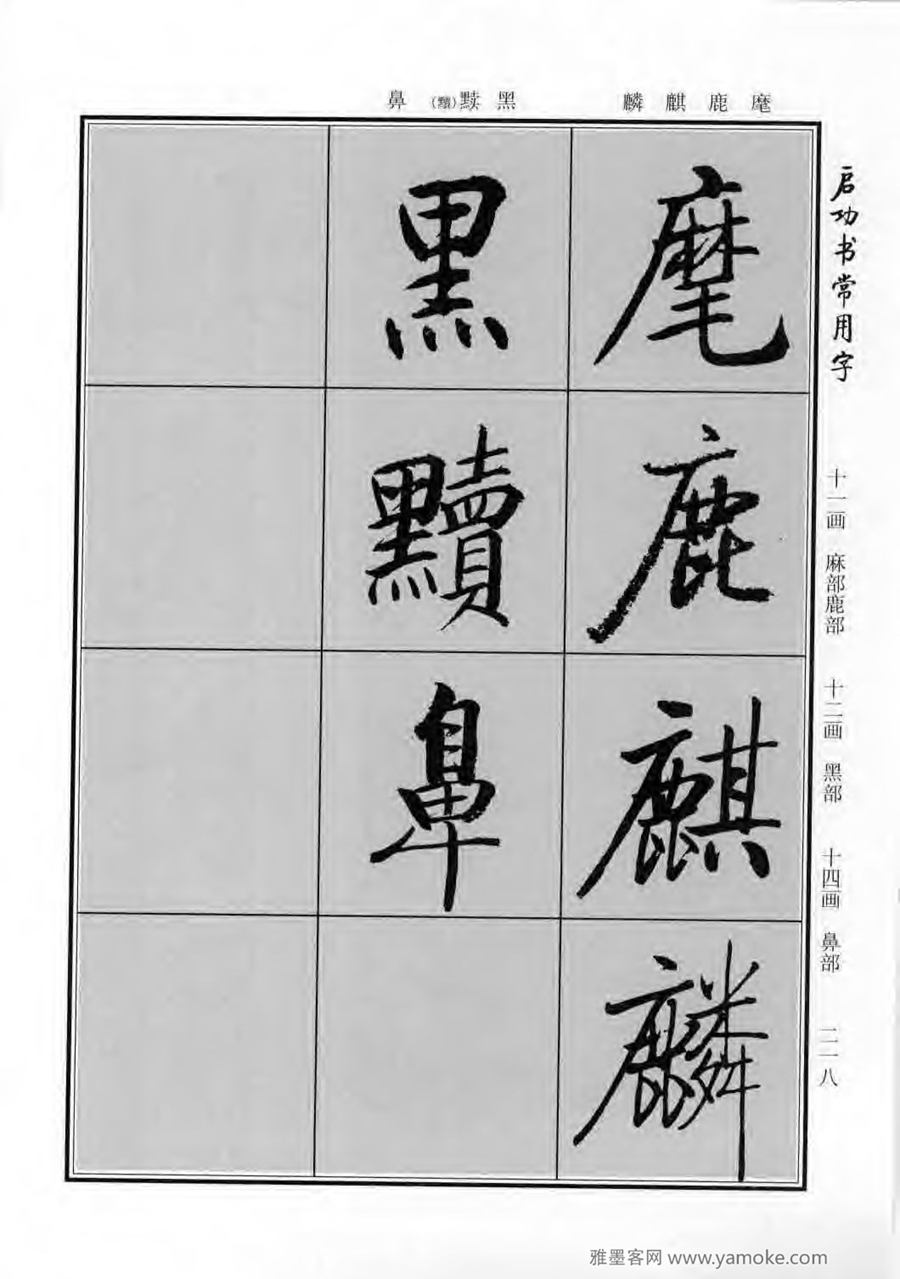 麾鹿麒麟
黑黩(黷)鼻
启功书常用字
十一画 麻部鹿部 十二画 黑部 十四画 鼻部 二一八
麾
鹿
麒
麟
黑
黷
鼻
雅墨客网 www.yamoke.com